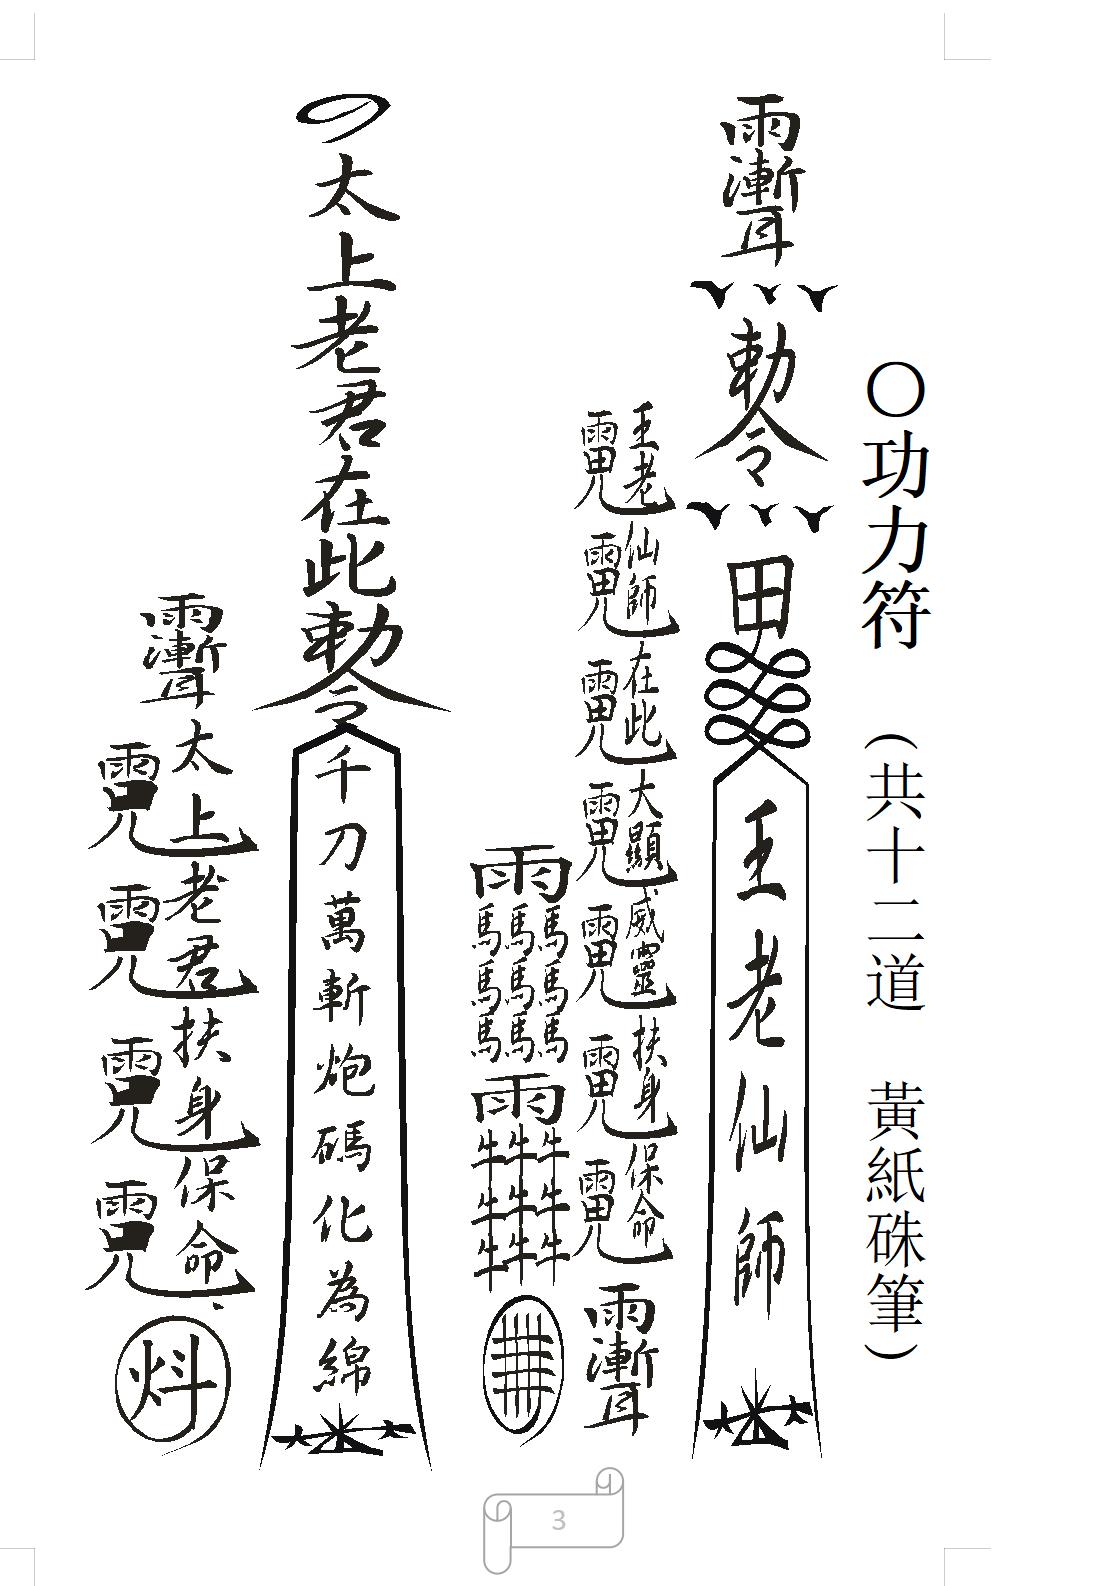 〇功力符 (共十二道 黃紙硃筆)
勅令
田
王老仙師
王老仙師在此大顯威靈扶身保命
雨
馬馬馬
馬馬馬
馬馬馬
雨
牛牛牛
牛牛牛
牛牛牛
太上老君在此勅令
千刀萬斬炮碼化為綿
太上老君扶身保命
3